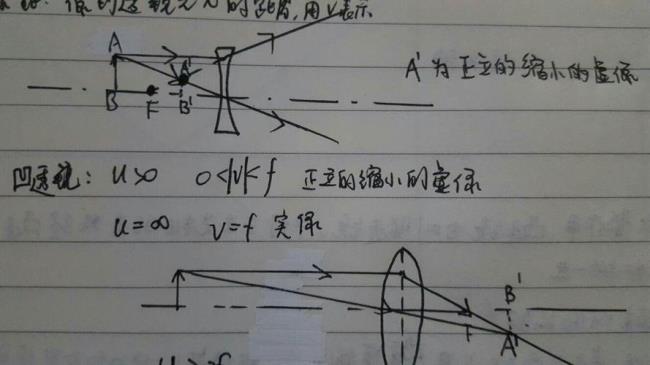 像的透镜光心的距离,用v表示
A A'
B F B'
A'为正立的缩小的虚像
凹透镜: u>0 0<|v|<f 正立的缩小的虚像
u=∞ v=f 实像
B'
A'